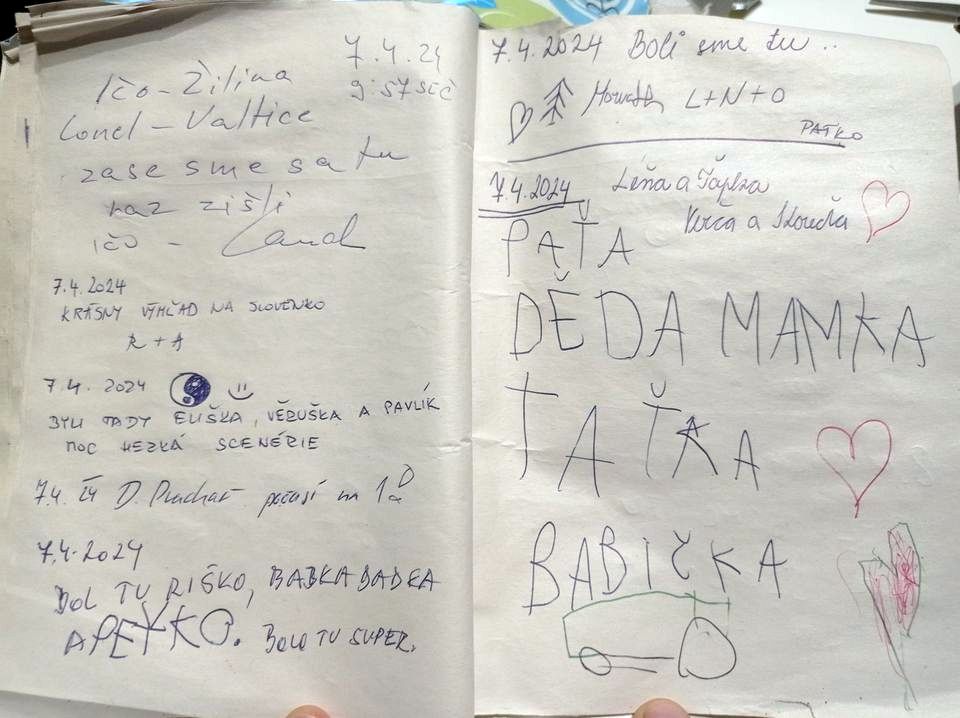 7.4.24
9:57 SEČ
Ičo - Žilina
Lonel - Valtice
zase sme sa tu
raz zišli
IČO -
7.4.2024
KRÁSNY VÝHĽAD NA SLOVENKO
R + A
7.4. 2024
BYLI TADY ELIŠKA, VĚRUŠKA A PAVLÍK
MOC HEZKÁ SCENÉRIE
7.4. 24 D. počasí na 1
7.4.2024
BOL TU RIŠKO, BABKA DADKA
A PEŤKO. BOLO TU SUPER.
7.4.2024 Boli sme tu ..
L+N+O
PAŤKO
7.4.2024 Léňa a
Verča a
PAŤA
DĚDA MAMKA
TAŤKA
BABIČKA